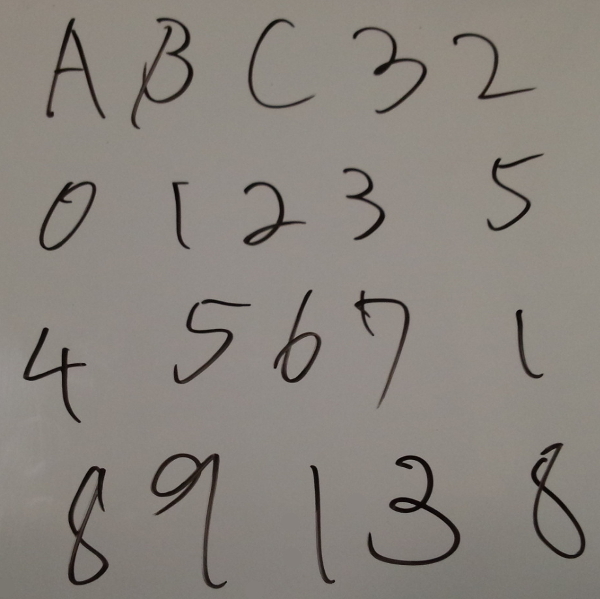 A B C 3 2
0 1 2 3 5
4 5 6 7 1
8 9 1 3 8